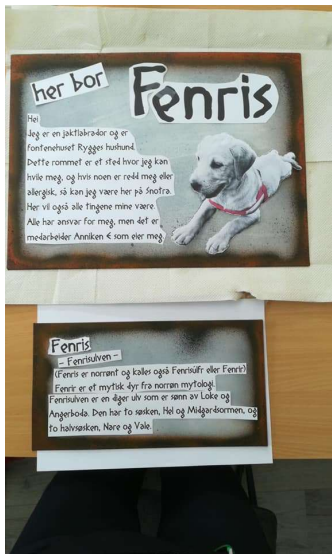 her bor
Fenris
Hei
Jeg er en jaktlabrador og er
fontenehuset Rygges hushund.
Dette rommet er et sted hvor jeg kan
hvile meg, og hvis noen er redd meg eller
allergisk, så kan jeg være her på Snotra.
Her vil også alle tingene mine være.
Alle har ansvar for meg, men det er
medarbeider Anniken E som eier meg.
Fenris
- Fenrisulven -
(Fenris er norrønt og kalles også Fenrisúlfr eller Fenrir)
Fenrir er et mytisk dyr fra norrøn mytologi.
Fenrisulven er en diger ulv som er sønn av Loke og
Angerboda. Den har to søsken, Hel og Midgardsormen, og
to halvsøsken, Nare og Vale.